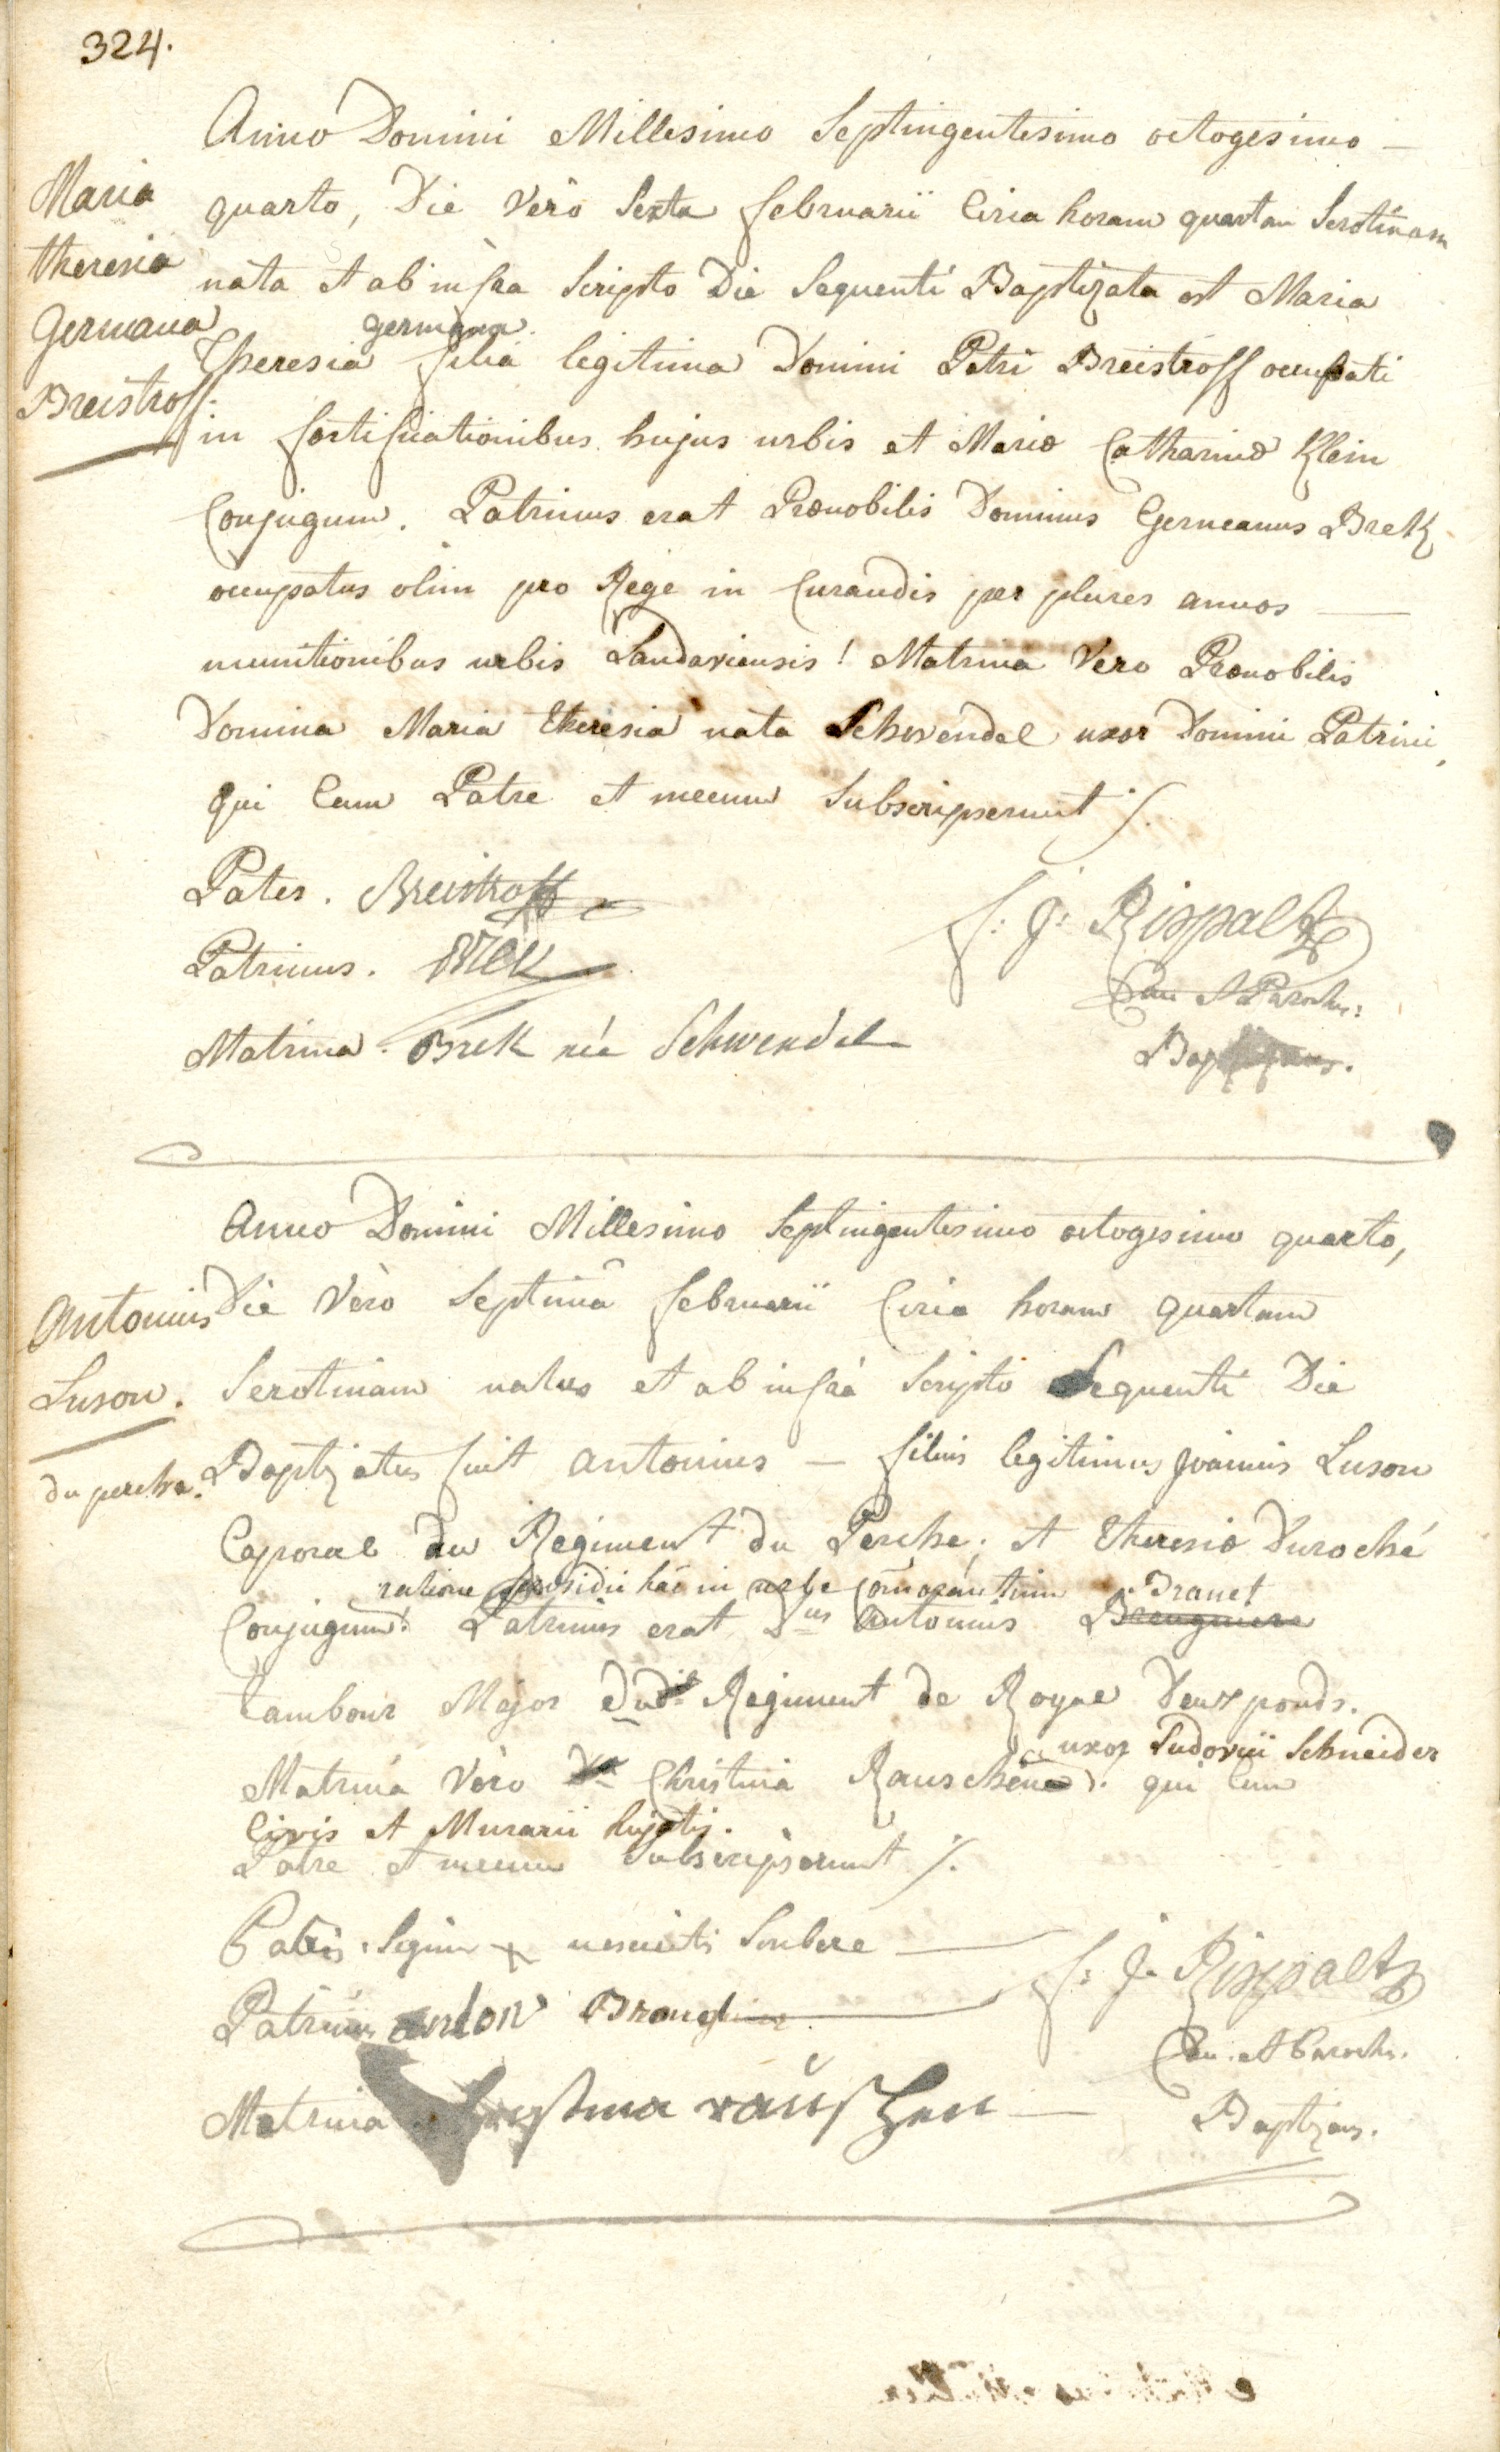 324.
Anno Domini Millesimo Septingentesimo octogesimo —
Maria
quarto, Die Verò Sexta februarii Circa horam quartam Serotinam
theresia
nata et ab infra Scripto Die Sequenti Baptizata est Maria
Germana
germana
Theresia filia legitima Domini Petri Breistroff occupati
Breistroff.
in fortificationibus hujus urbis et Mariæ Catharinæ Klein
Conjugum. Patrinus erat Prænobilis Dominus Germanus Brek
occupatus olim pro Rege in Curandis per plures annos —
munitionibus urbis Landaviensis! Matrina Vero Prænobilis
Domina Maria Theresia nata Schwendel uxor Domini Patrini,
qui Cum Patre et mecum Subscripserunt ./.
Pater. Breistroff
f: J: Rispalt
Patrinus. Brek
Can et Paroch:
Matrina. Brek née Schwendel
Baptizans.
Anno Domini Millesimo Septingentesimo octogesimo quarto,
Antonius
Die Verò Septimâ februarii Circa horam quartam
Luson.
Serotinam natus et ab infrà Scripto Sequenti Die
Baptizatus fuit Antonius — filius legitimus Joannis Luson
du perche.
Caporal du Regiment du Perche; et Theresiæ Duroché
ratione præsidii hac in urbe Com̃orantium Branet
Conjugum! Patrinus erat Dnus Antonius
Tambour Major dudit Regiment de Royal Deuxponds.
uxor Ludovici Schneider
Matrina Vero Christina Rauschen qui Cum
Civis et Murarii hujatis.
Patre et mecum Subscripserunt ./.
Patris Signum + nescientis Scribere —
f: J: Rispalt
Patrinus anton
Can: et Paroch.
Matrina Christina rauschen —
Baptizans.